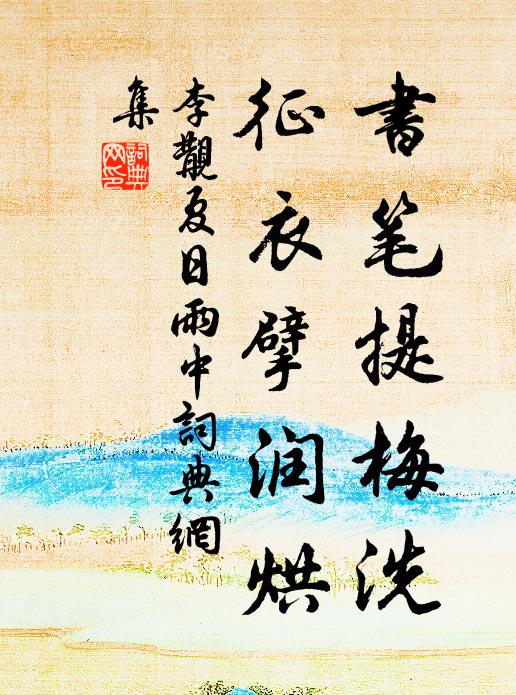 書笔提梅洗
征衣擘润烘
李覯夏日雨中詞典網
集
詞典
网印